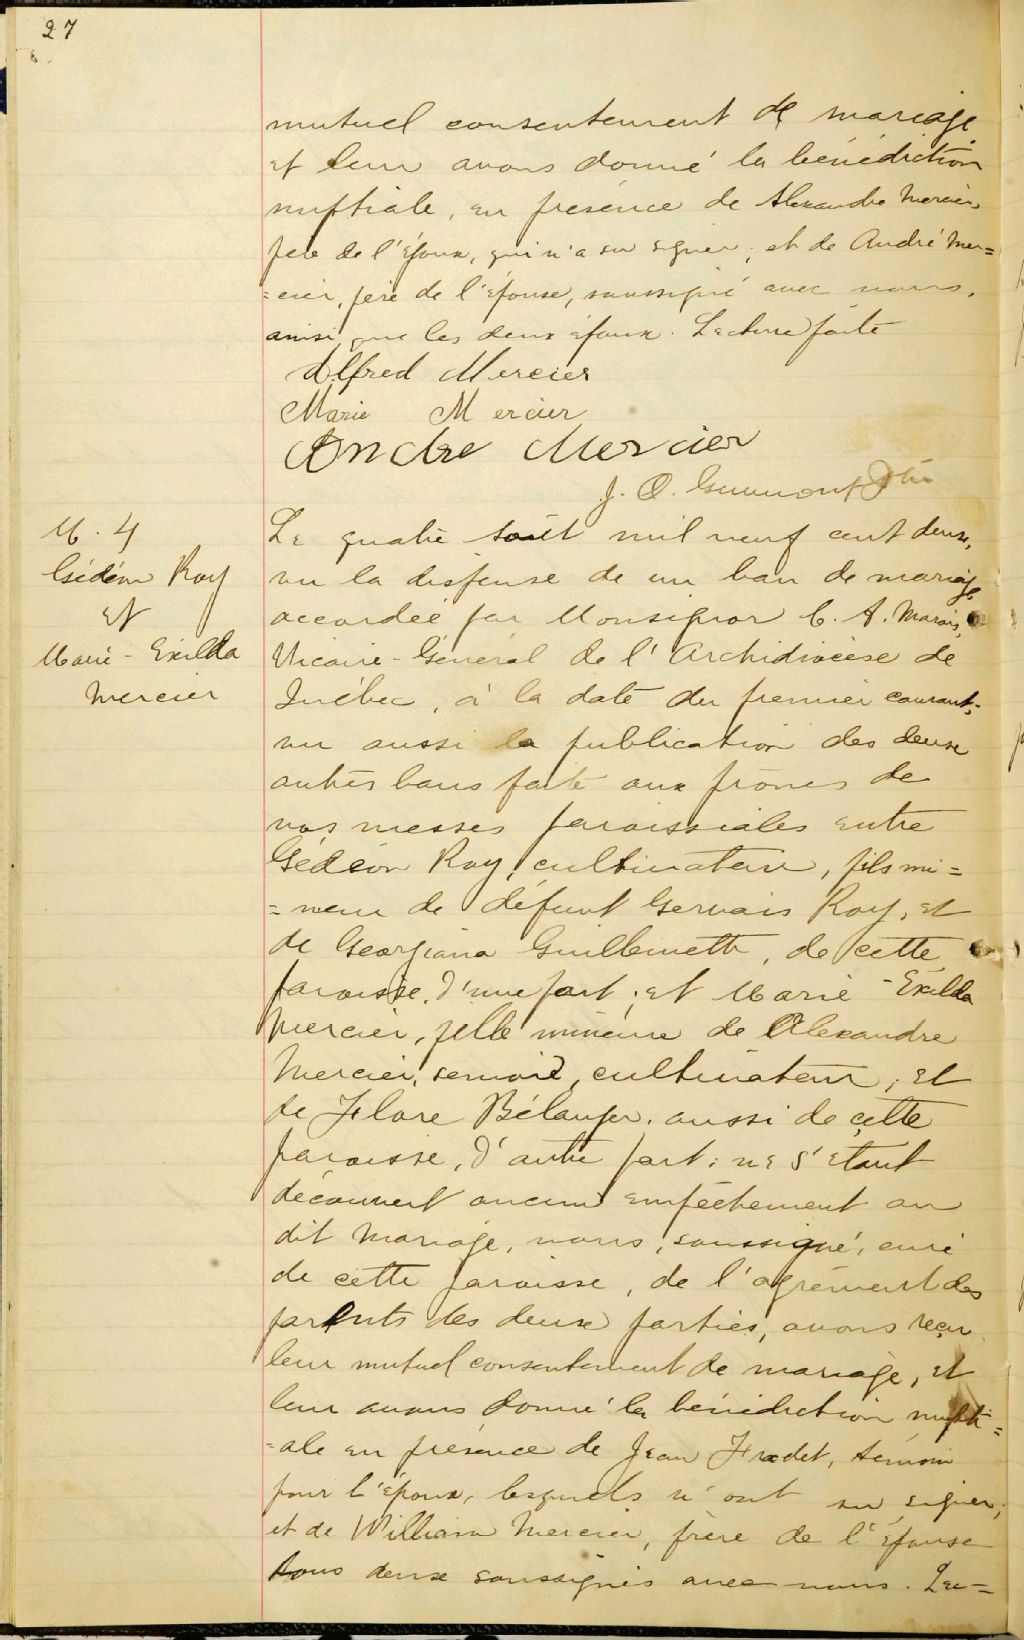 27
mutuel consentement de mariage
et leur avons donné la bénédiction
nuptiale, en présence de Alexandre Mercier,
père de l'époux, qui n'a su signer, et de André Mer=
=cier, père de l'épouse, soussigné avec nous,
ainsi que les deux époux. Lecture faite
Alfred Mercier
Marie Mercier
Andre Mercier
J. O. Guimont Ptre
M. 4
Gédéon Roy
et
Marie-Exilda
Mercier
Le quatre août mil neuf cent deux,
vu la dispense de un ban de mariage
accordée par Monsignor C. A. Marois,
Vicaire-Général de l'Archidiocèse de
Québec, à la date du premier courant;
vu aussi la publication des deux
autres bans faite aux prônes de
nos messes paroissiales entre
Gédéon Roy, cultivateur, fils mi=
=neur de défunt Gervais Roy, et
de Georgiana Guillemette, de cette
paroisse, d'une part; et Marie-Exilda
Mercier, fille mineure de Alexandre
Mercier, senior, cultivateur, et
de Flore Bélanger, aussi de cette
paroisse, d'autre part; ne s'étant
découvert aucun empêchement au
dit mariage, nous, soussigné, curé
de cette paroisse, de l'agrément des
parents des deux parties, avons reçu
leur mutuel consentement de mariage, et
leur avons donné la bénédiction nupti=
=ale en présence de Jean Fradet, témoin
pour l'époux, lesquels n'ont su signer,
et de William Mercier, frère de l'épouse
tous deux soussignés avec nous. Lec=